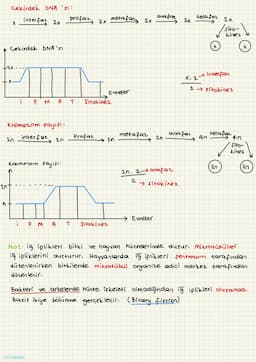 Çekirdek DNA'sı:
x interfaz 2x profaz 2x metafaz 2x anafaz 2x telofaz 2x
Sito-
kinez
x x
Çekirdek DNA'sı
2x
x
Evreler
I P M A T Sitokinez
x.2 → interfaz
2 → sitokinez
Kromozom sayısı:
2n interfaz 2n Profaz 2n metafaz 2n anafaz 4n telofaz 4n
Sito-
kinez
2n 2n
Kromozom sayısı
Evreler
I P M A T Sitokinez
2n.2 → anafaz
2 → sitokinez
Not: İğ iplikleri bitki ve hayvan hücrelerinde oluşur. Mikrotübüller
iğ ipliklerini oluşturur. Hayvanlarda iğ iplikleri sentrozom tarafından
düzenlenirken bitkilerde mikrotübül organize edici merkez tarafından
düzenlenir.
Bakteri ve arkelerde hücre iskeleti olmadığından iğ iplikleri oluşamaz.
Basit ikiye bölünme gerçekleşir. (Binary fission)